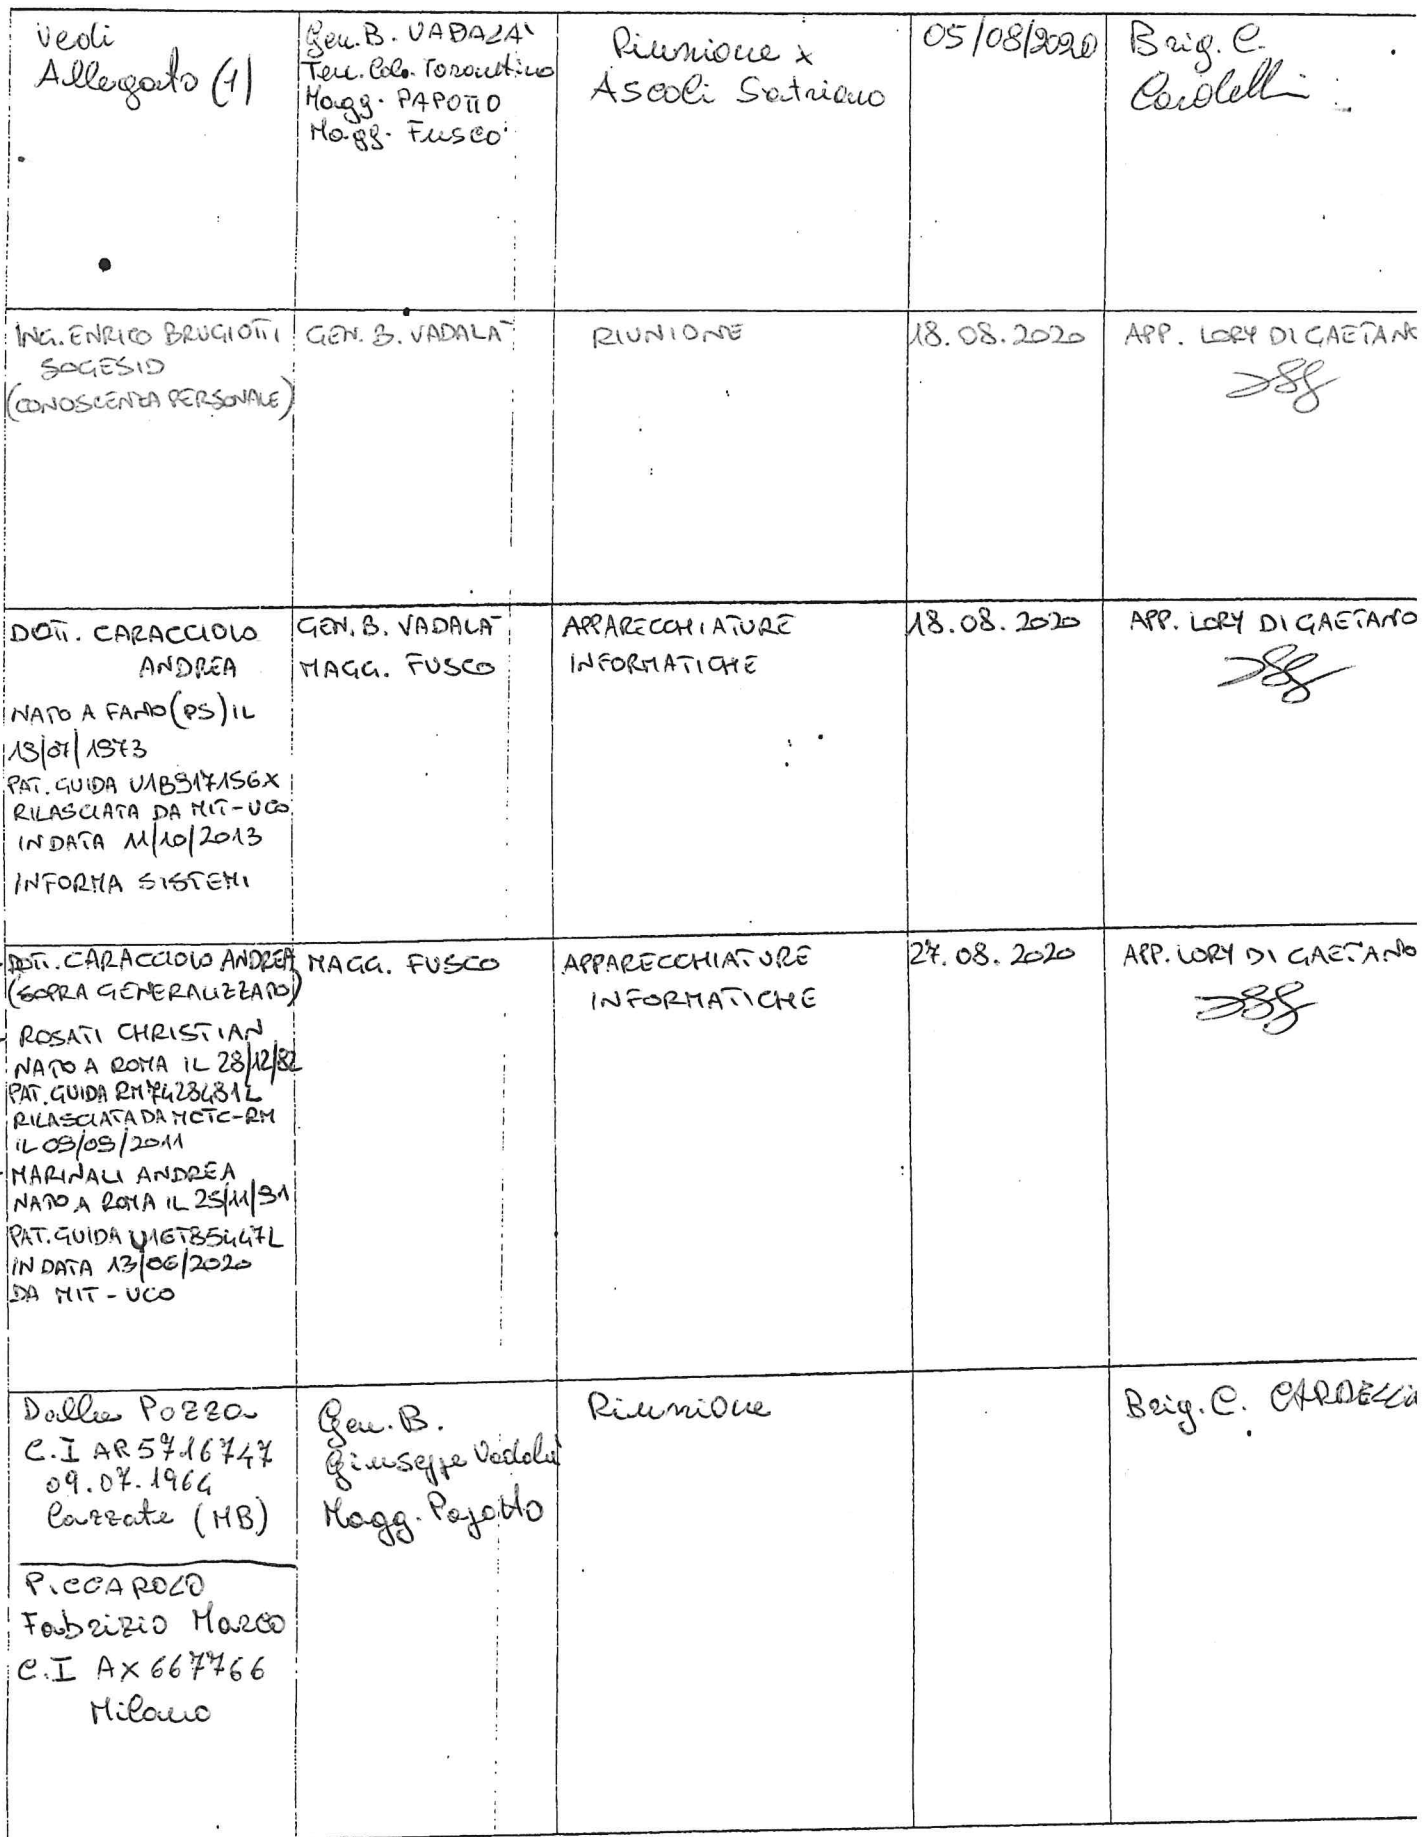 Vedi
Allegato (1)
Gen. B. VADALA'
Ten. Col. Tarantino
Magg. PAPOTTO
Magg. Fusco
Riunione x
Ascoli Satriano
05/08/2020
Brig. C.
Cardelli
ING. ENRICO BRUGIOTTI
SOGESID
(CONOSCENZA PERSONALE)
GEN. B. VADALA'
RIUNIONE
18.08.2020
APP. LORY DI GAETANO
DOTT. CARACCIOLO
ANDREA
NATO A FANO (PS) IL
1973
PAT. GUIDA
RILASCIATA DA MIT-UCO
IN DATA 11/10/2013
INFORMA SISTEMI
GEN. B. VADALA'
MAGG. FUSCO
APPARECCHIATURE
INFORMATICHE
18.08.2020
APP. LORY DI GAETANO
DOTT. CARACCIOLO ANDREA
(SOPRA GENERALIZZATO)
- ROSATI CHRISTIAN
NATO A ROMA IL 28/12/82
PAT. GUIDA
RILASCIATA DA MCTC-RM
IL 09/09/2011
- MARINALI ANDREA
NATO A ROMA IL
PAT. GUIDA
IN DATA 13/06/2020
DA MIT - UCO
MAGG. FUSCO
APPARECCHIATURE
INFORMATICHE
27.08.2020
APP. LORY DI GAETANO
Dalla Pozza
C.I AR 5716747
09.07.1964
(MB)
PICCAROLO
Fabrizio Marco
C.I AX 667766
Milano
Gen. B.
Giuseppe Vadalà
Magg. Papotto
Riunione
Brig. C. CARDELLI